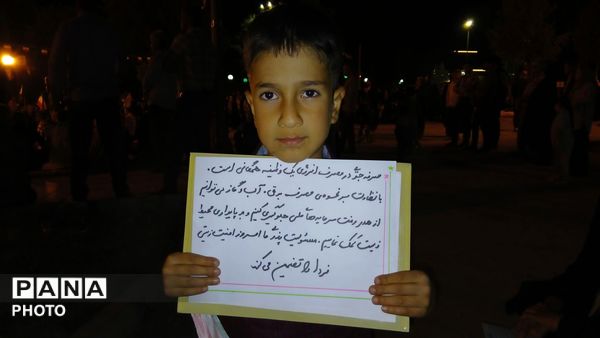 صرفه جویی در مصرف انرژی یک وظیفه همگانی است.
با نظارت بر عمومی مصرف برق، آب و گاز می توانیم
از هدر رفت سرمایه های ملی جلوگیری کنیم و به پایداری محیط
زیست کمک نماییم. مسئولیت پذیری ما امروز امنیت زیستی
فردا را تضمین می کند
PANA
PHOTO